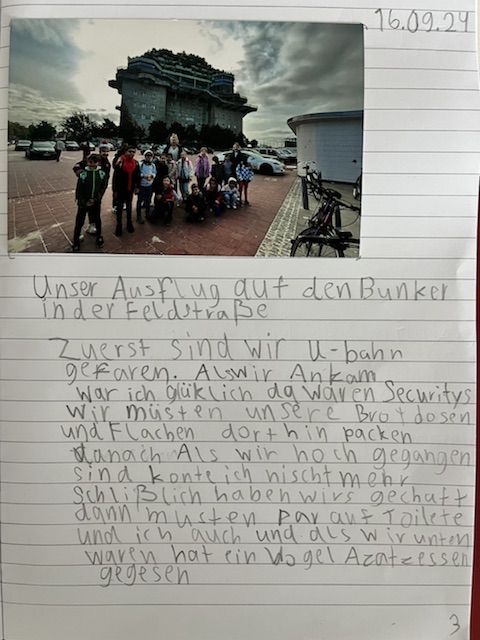 16.09.24
Unser Ausflug auf den Bunker
in der Feldstraße
Zuerst sind wir U-bahn
gefaren. Als wir Ankam
war ich glüklich da waren Securitys
wir müsten unsere Brotdosen
und Flachen dort hin packen
danach Als wir hoch gegangen
sind konte ich nischt mehr
schlißlich haben wirs gechaft
dann musten par auf Toilete
und ich auch und als wir unten
waren hat ein Vogel
gegesen
3